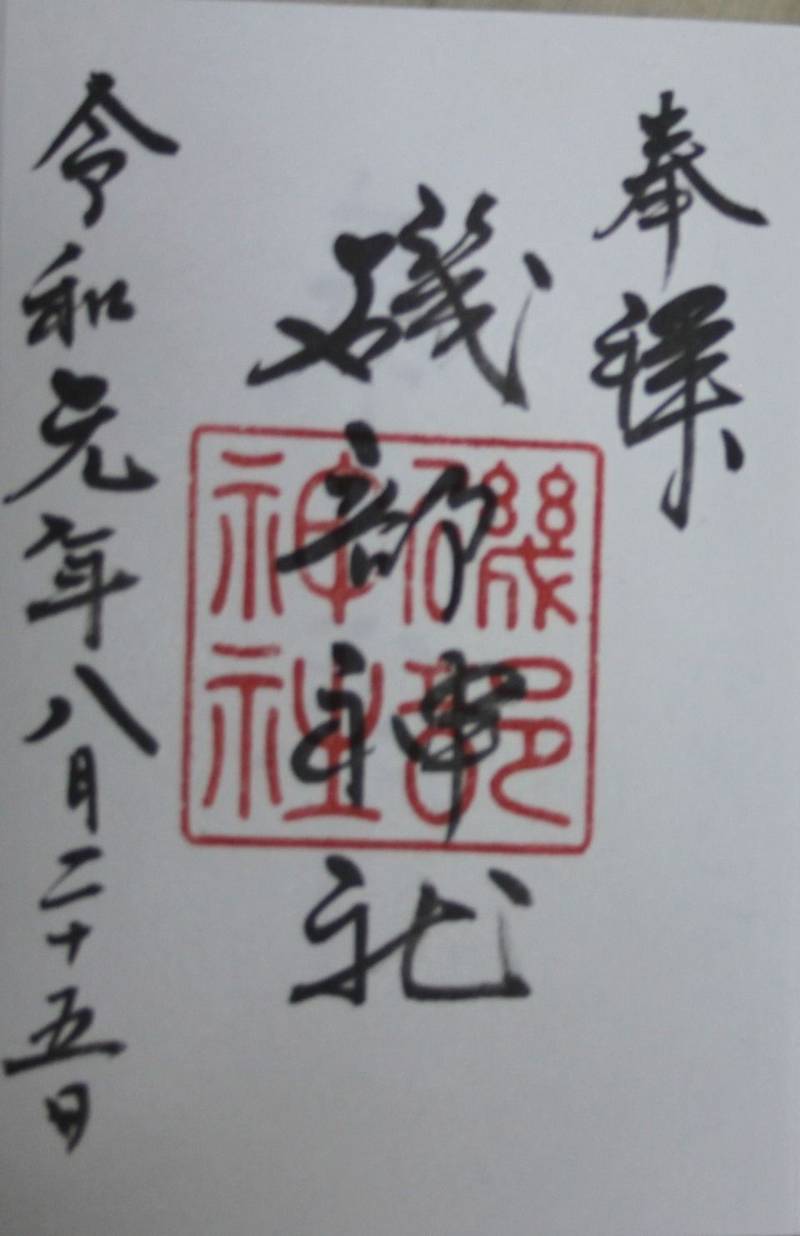 奉拝
磯部神社
磯部
神社
令和元年八月二十五日